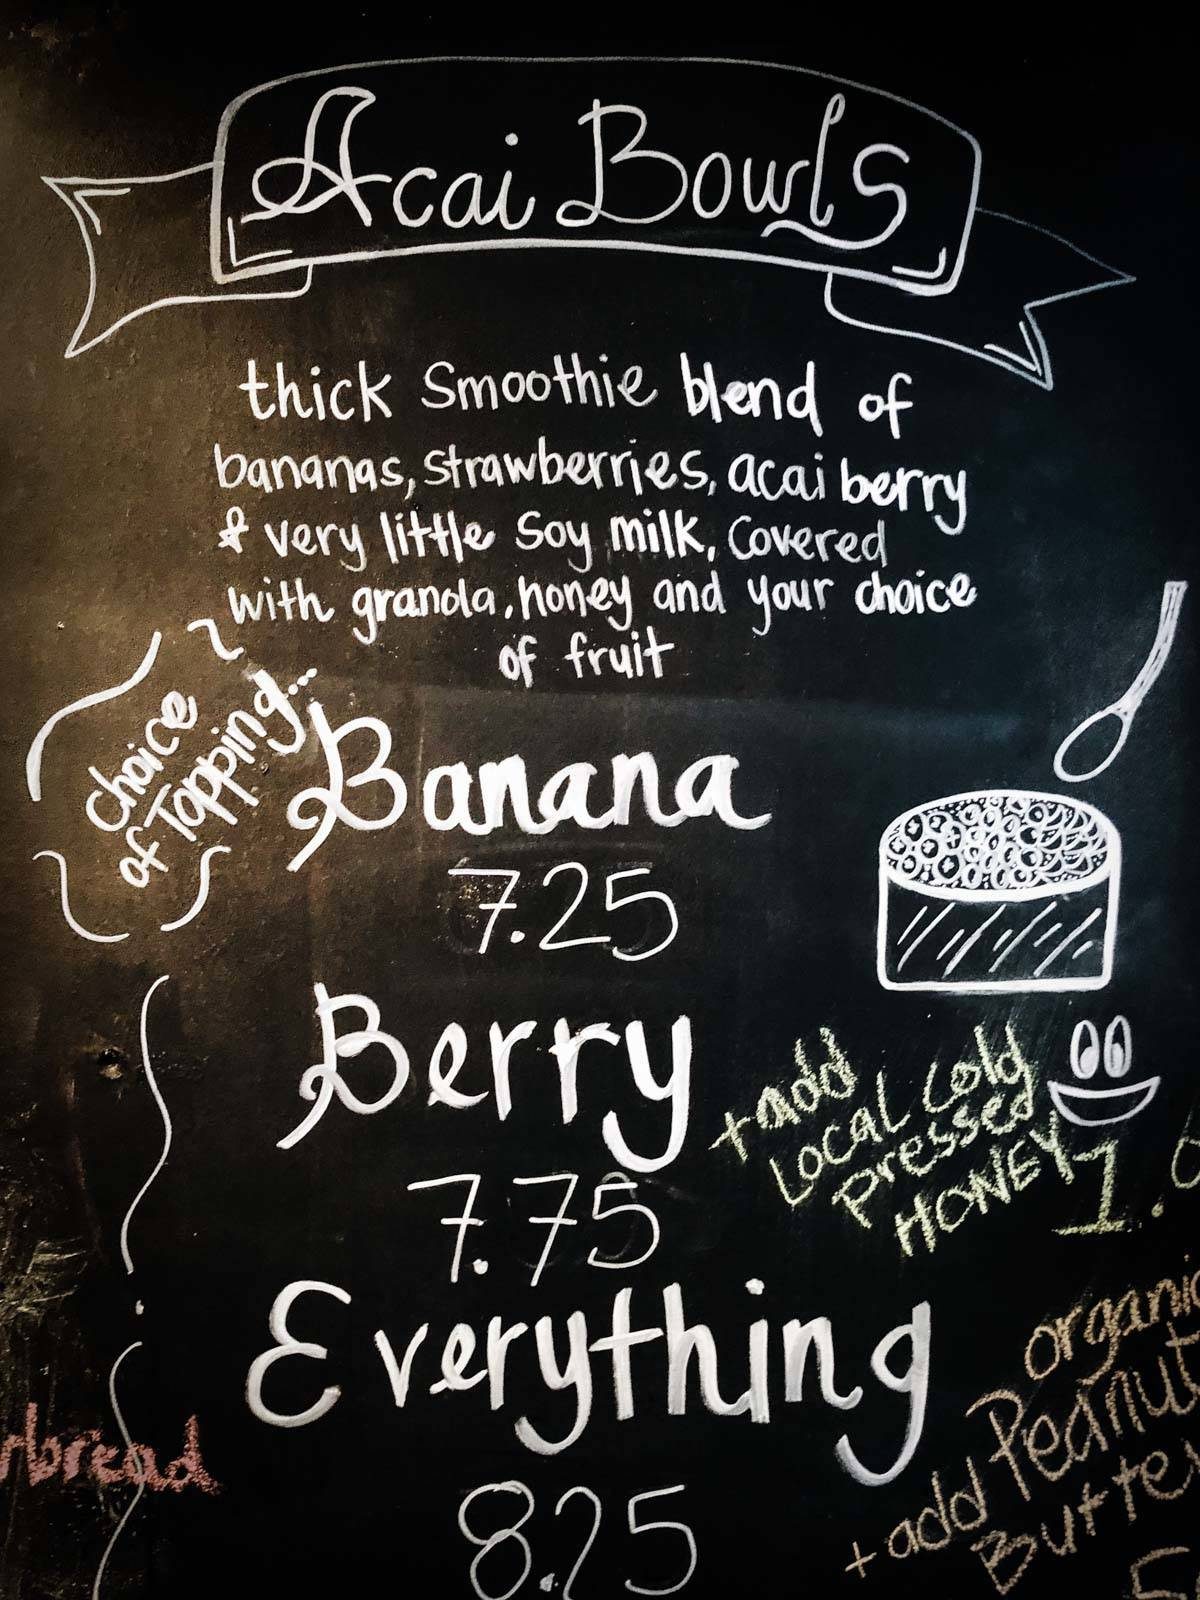 Acai Bowls
thick smoothie blend of
bananas, strawberries, acai berry
& very little soy milk, covered
with granola, honey and your choice
of fruit
Choice
of Topping...
Banana
7.25
Berry
7.75
+ add
LOCAL Cold
Pressed
HONEY 1.
Everything
8.25
organic
+ add Peanut
Butter